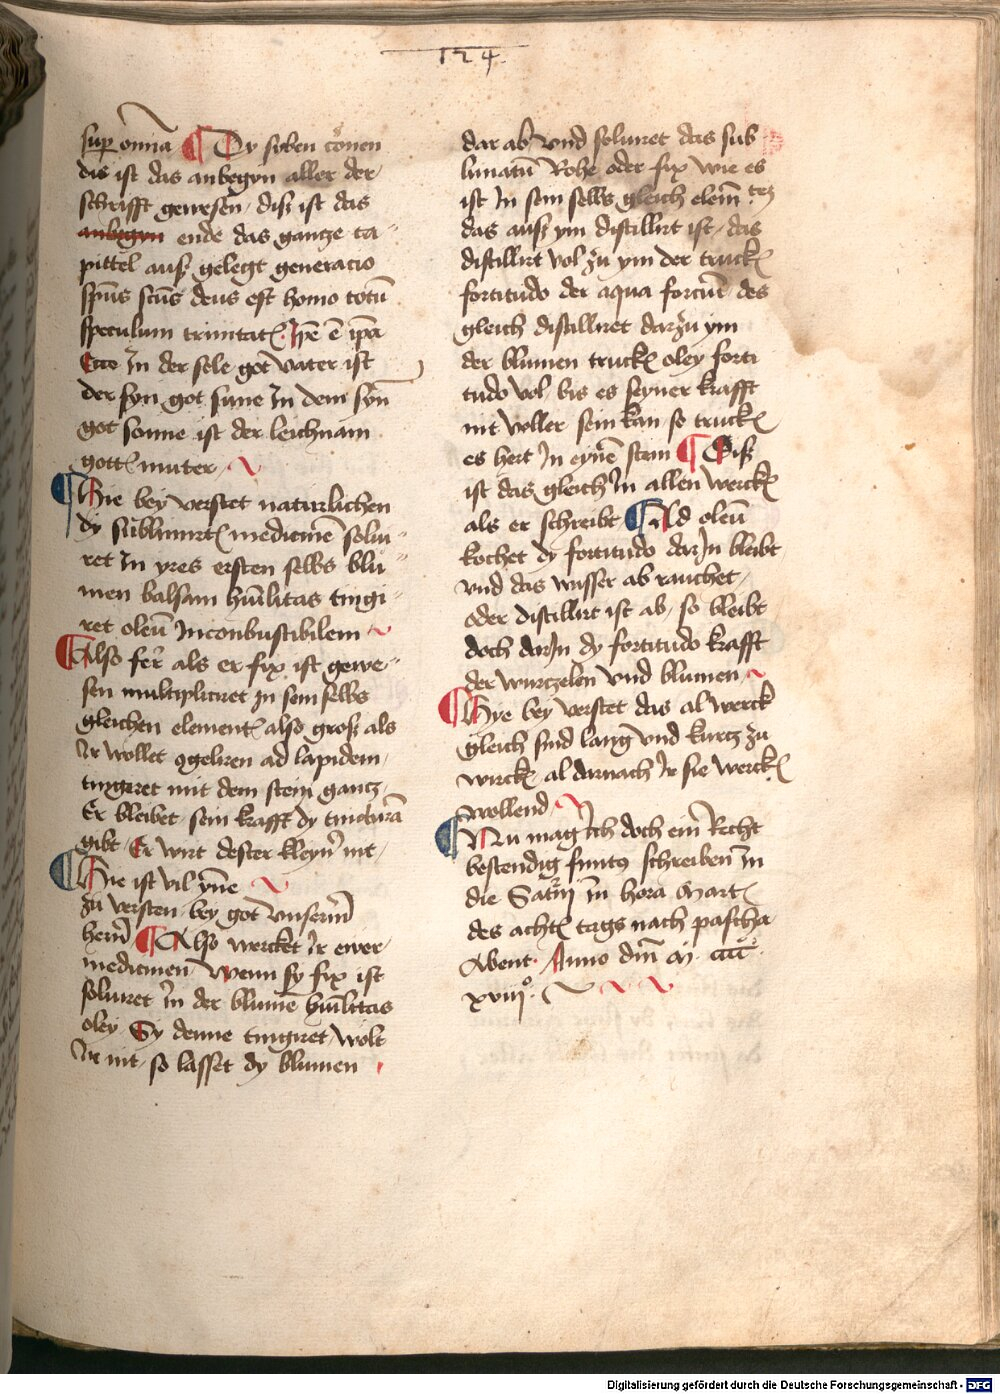 124
sup omnia ¶ Dy syben conen
dis ist das anbegyn aller der
schrifft gewesen, diß ist das
anbegyn ende das gantze ca
pittel auß gelegt generacio
sp̃us sc̃us deus est homo totũ
speculum trinitat
In der sele got vater ist
der syn got sune In dem syñ
got sonne ist der leichnam
gott muter
¶ Hie bey verstet naturlichen
dy sublimirt medicinẽ solui
ret In yres ersten selbs blu
men balsam hũilitas tingi
ret oleũ Inconbustibilem
¶ Also fer als er fix ist gewe
sen multipliciret in sein selbs
gleichen element also groß als
Ir wollet 9geliren ad lapidem,
tingiret mit dem stein gantz,
Er bleibet sein krafft dy tincturã
gibt, Er wirt dester kleyñ nit,
¶ Hie ist vil ynne
zu versten bey got vnserm̃
hern̄ ¶ Also wercket Ir ewer
medicinen, Wenn sy fix ist
soluiret in der blumẽ hũilitas
oley Sy denne tingiret, wolt
Ir nit, so lasset dy blumen
dar ab vnd soluiret das sub
limatũ Rohe oder fix wie es
ist In sein selbs gleich elem̃tez
das auß ym distillirt ist, das
distillirt vol zu ym der truck
fortitudo der aqua forcium des
gleich distilliret darzu ym
der blumen truck oley forti
tudo vol, bis es seyner krafft
nit voller sein kan so truck
es hert In eynẽ stein ¶ Diß
ist das gleich In allen werck
als er schreibt ¶ Ald oleũ
kochet dy fortitudo dar In bleibt
vnd das wasser ab rauchet,
oder distillirt ist ab, so bleibt
doch dar In dy fortitudo krafft
der wurczelen vnd blumen
¶ Hye bey verstet das al werck
gleich sind lang vnd kurcz zu
wirck, al darnach Ir sie werck
wollend
¶ Nu mag ich doch ein Recht
bestendig schreiben in
die Sat̃nj in hora Mart
des acht tags nach pascha
Abent. Anno dm̃ M cccc
xviij°
Digitalisierung gefördert durch die Deutsche Forschungsgemeinschaft - DFG